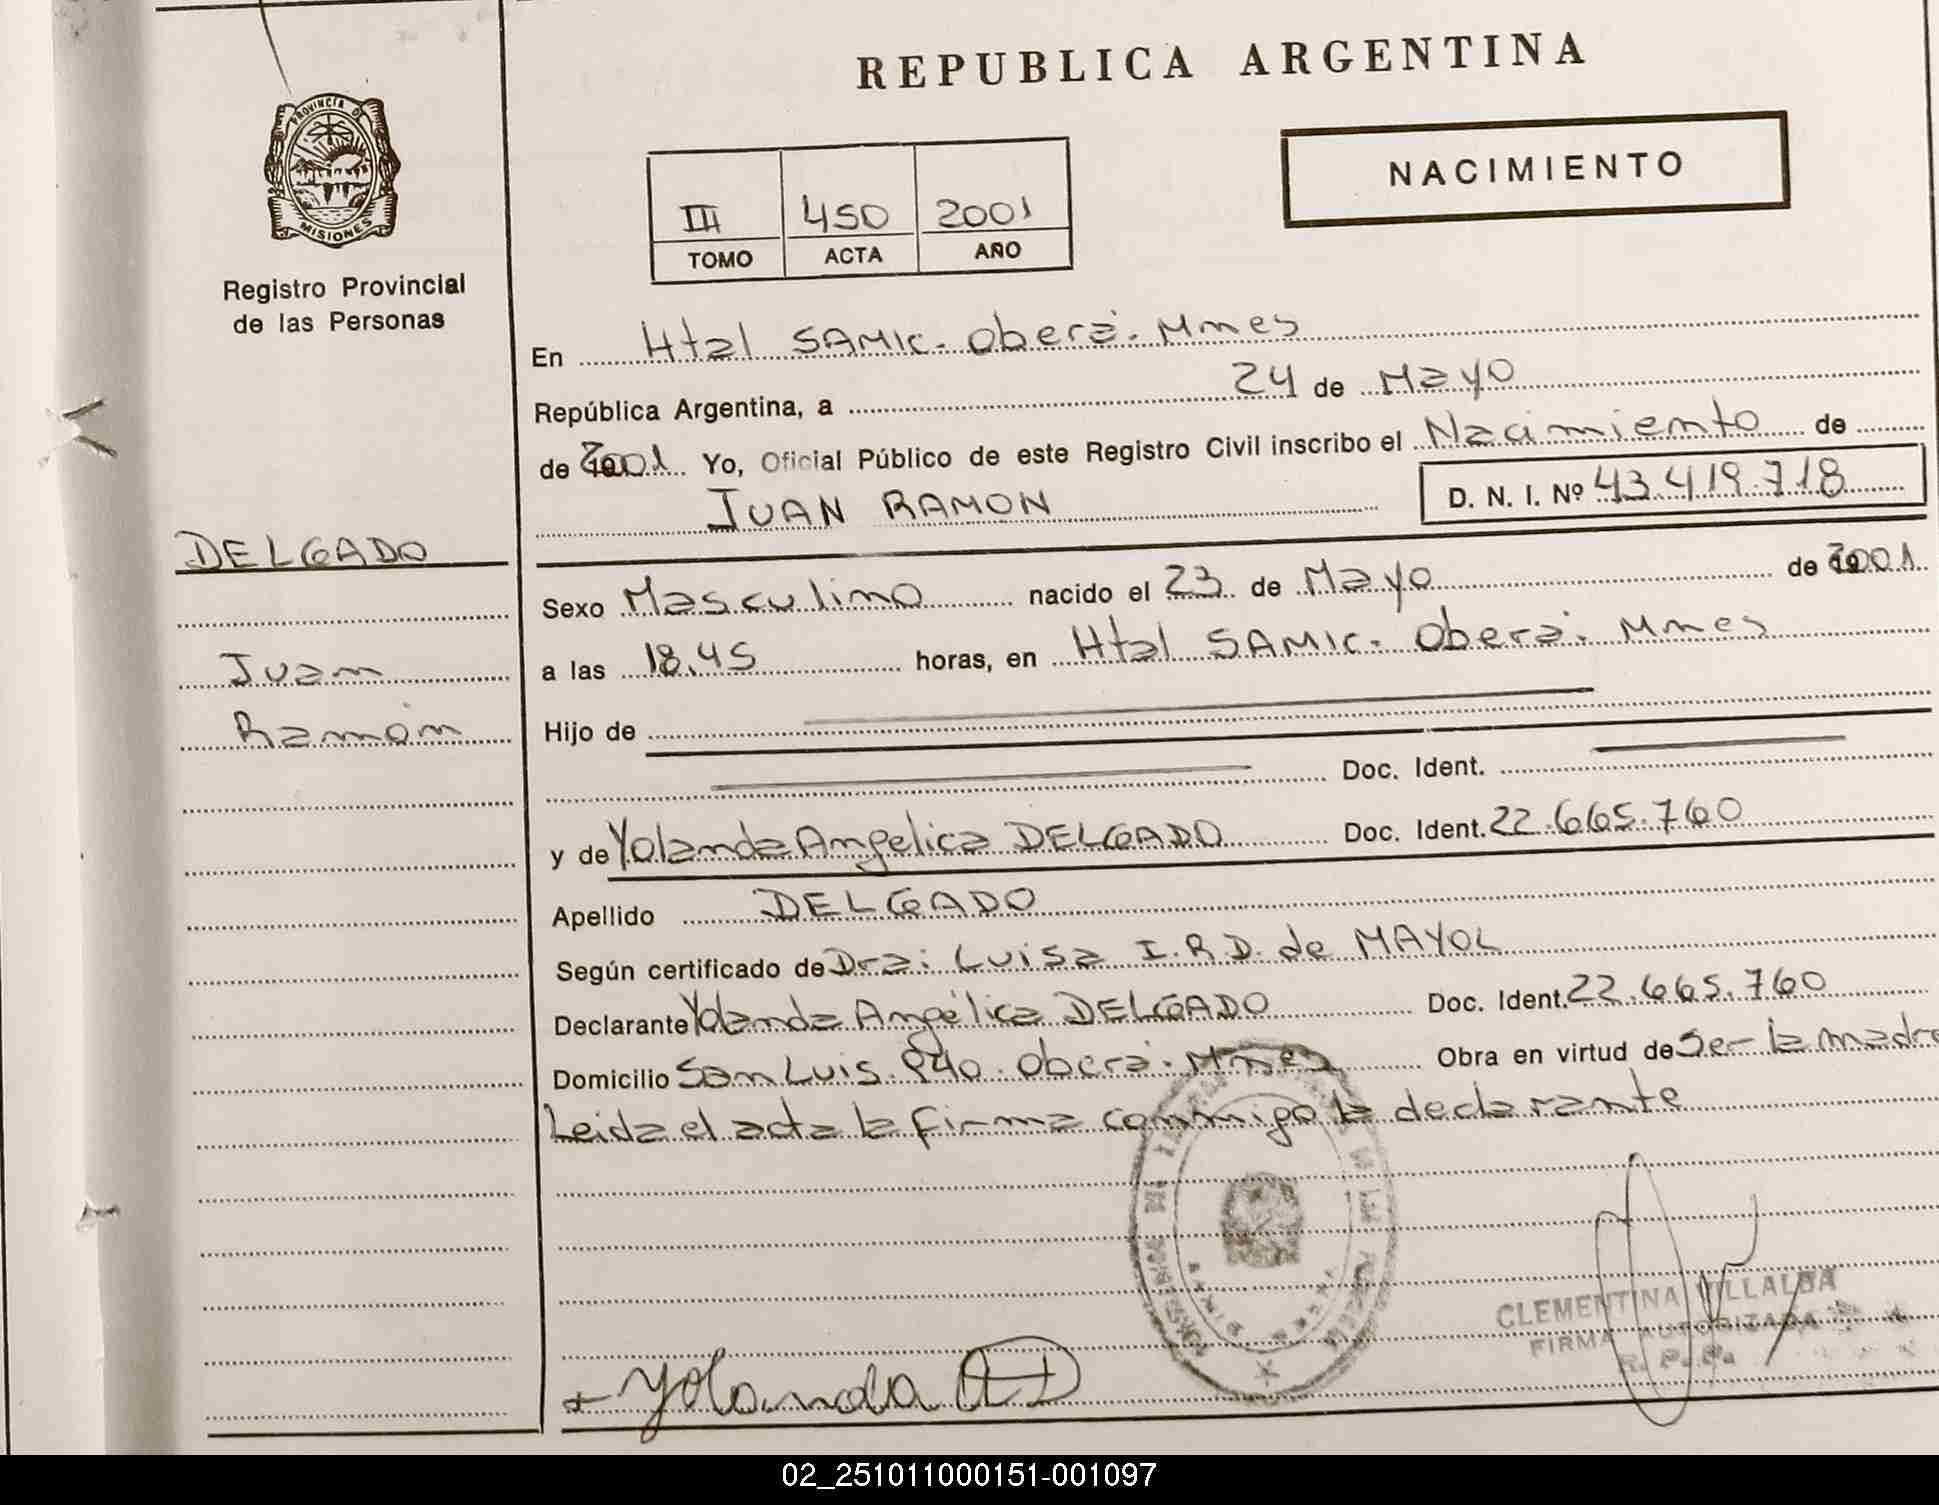 REPUBLICA ARGENTINA
NACIMIENTO
PROVINCIA D
MISIONES
Registro Provincial
de las Personas
III 450 2001
TOMO ACTA AÑO
En Htal SAMIC. Oberá. Mnes
República Argentina, a 24 de Mayo
de 2001 Yo, Oficial Público de este Registro Civil inscribo el Nacimiento de
JUAN RAMON D. N. I. Nº 43.419.718
DELGADO
Juan
Ramón
Sexo Masculino nacido el 23 de Mayo de 2001
a las 18.45 horas, en Htal SAMIC. Oberá. Mnes
Hijo de
Doc. Ident.
y de Yolanda Angelica DELGADO Doc. Ident. 22.665.760
Apellido DELGADO
Según certificado de Dra: Luisa I.R.D. de MAYOL
Declarante Yolanda Angélica DELGADO Doc. Ident. 22.665.760
Domicilio San Luis 940. Oberá. Mnes Obra en virtud de Ser la madre
Leida el acta la firma conmigo la declarante
CLEMENTINA VILLALBA
FIRMA AUTORIZADA
R. P. P.
Yolanda A D
02_251011000151-001097